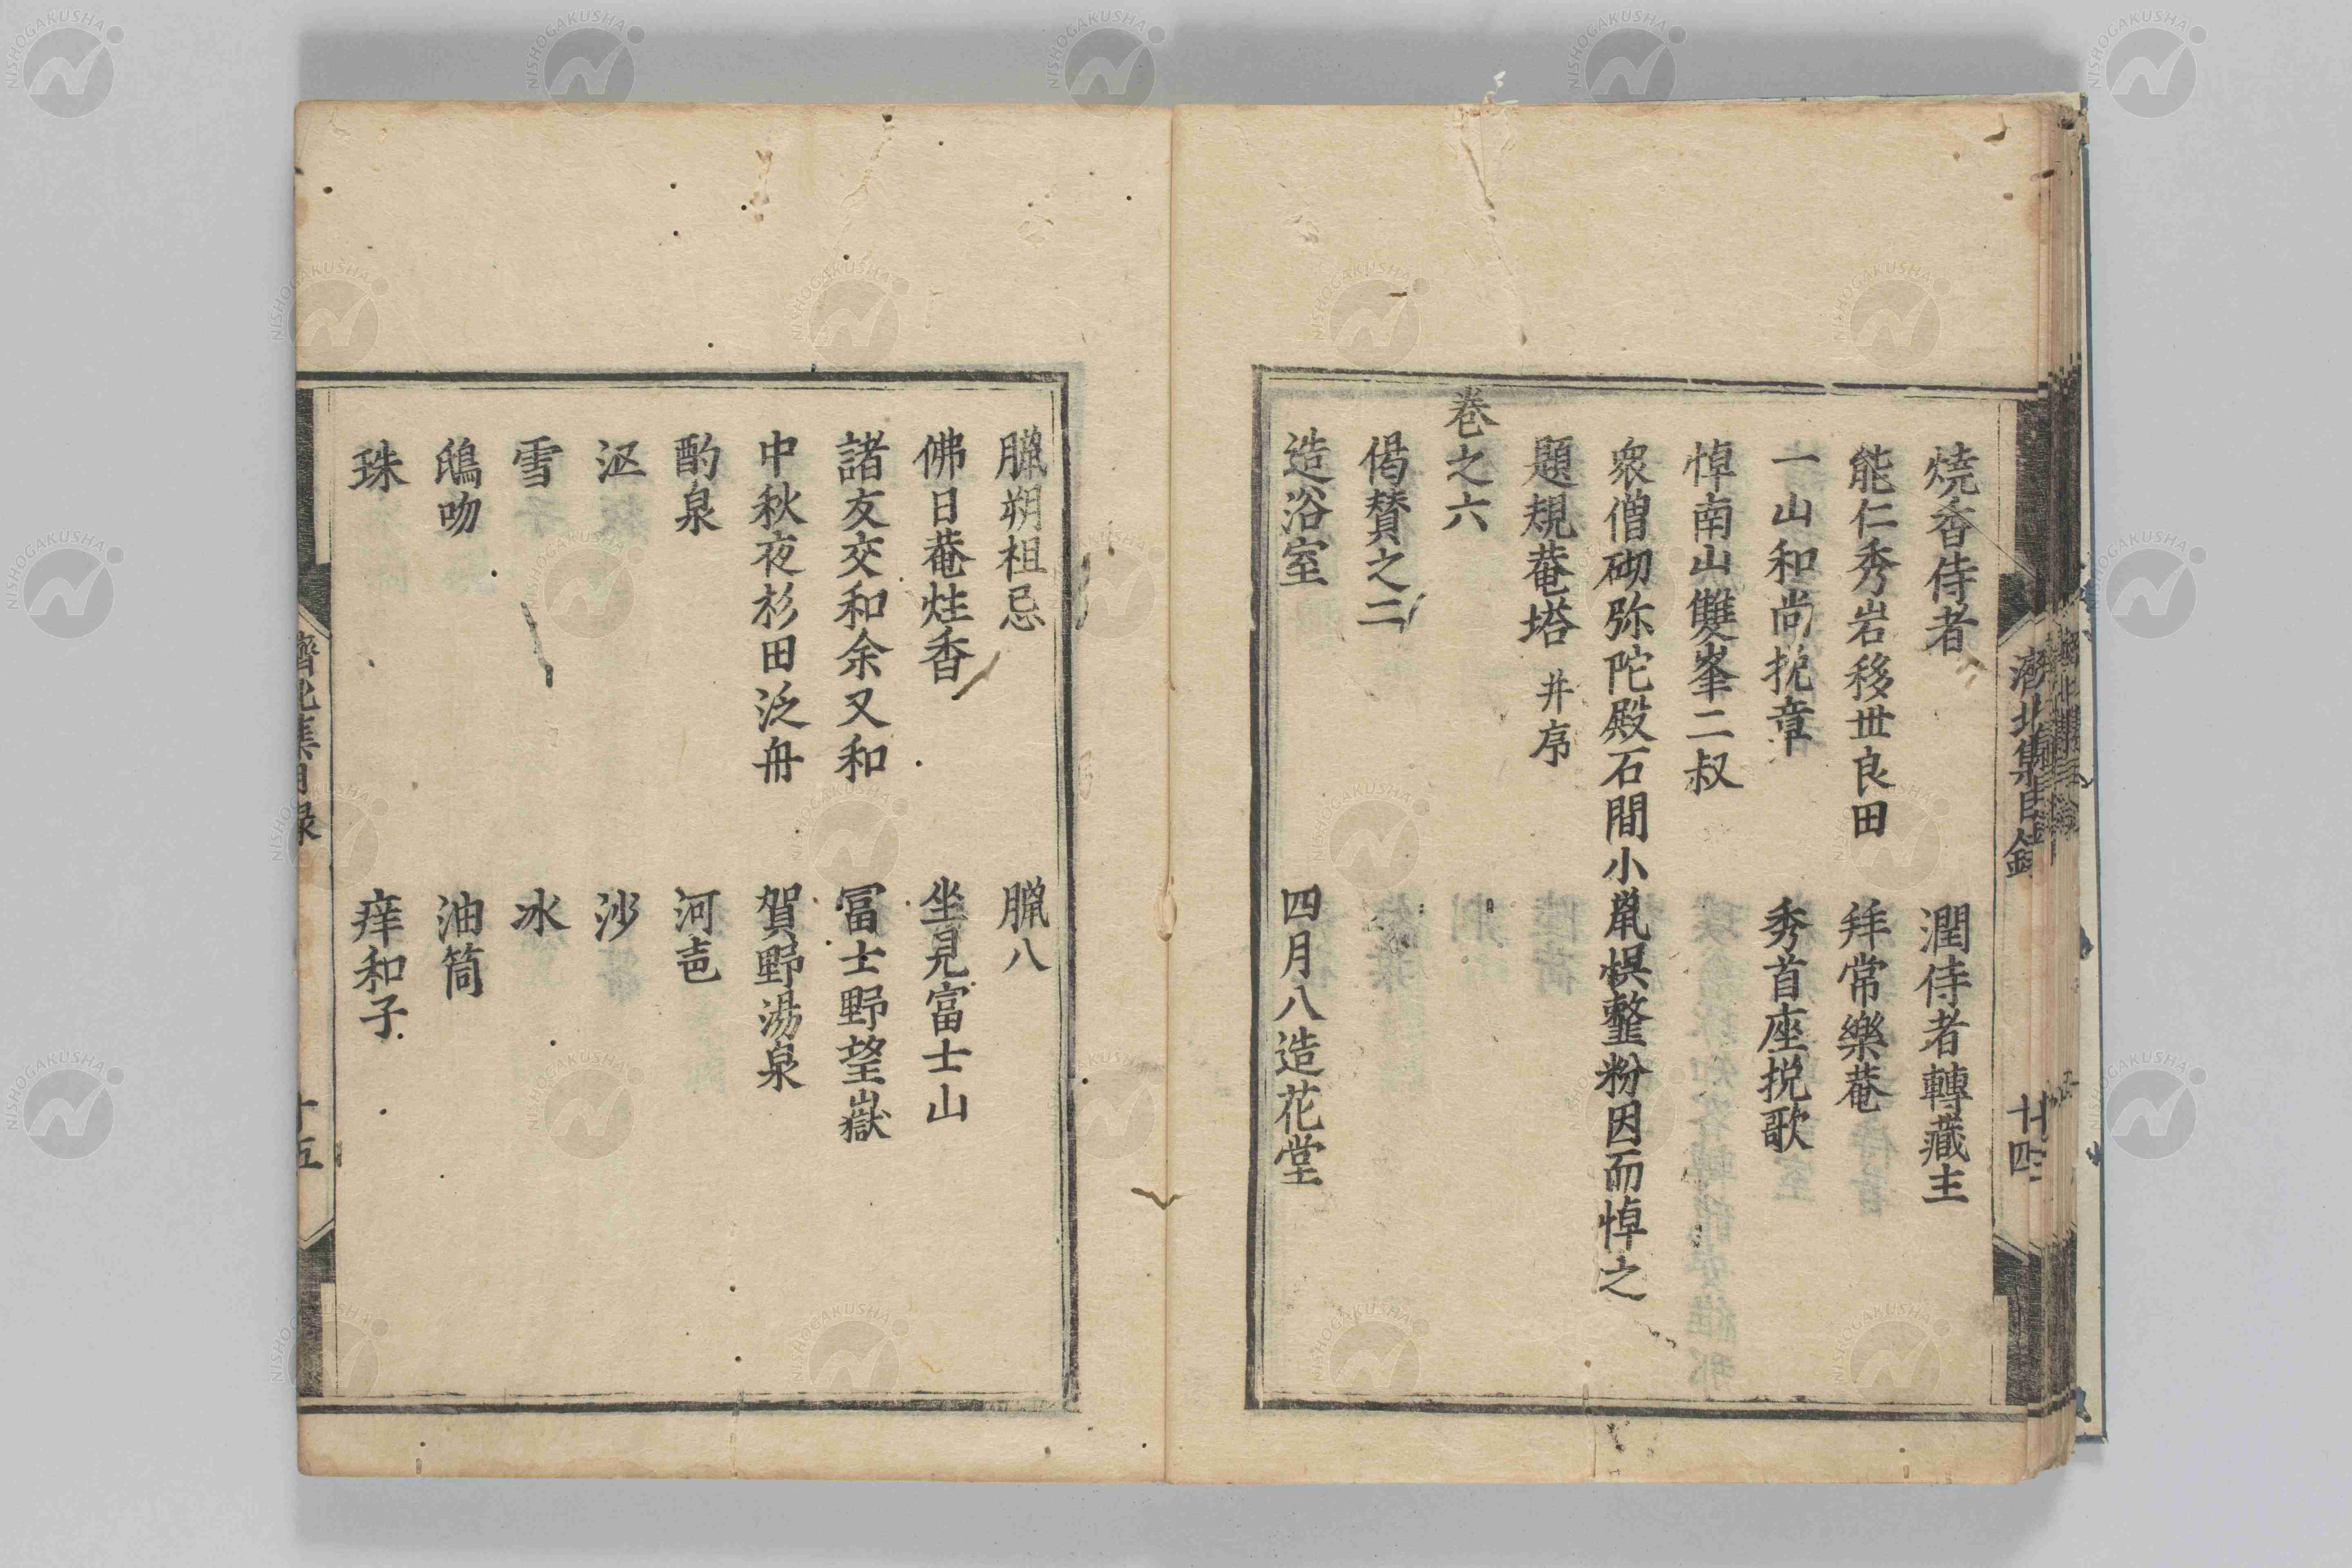 燒香侍者　潤侍者轉藏主
能仁秀岩移丗良田　拜常樂菴
一山和尚挽章　秀首座挽歌
悼南山雙峯二叔
衆僧砌弥陀殿石間小鼠悞整粉因而悼之
題規菴塔 并序
卷之六
偈賛之二
造浴室　四月八造花堂
濟北集目錄　廿四
臘朔祖忌　臘八
佛日菴炷香　坐見富士山
諸友交和余又和　冨士野望嶽
中秋夜杉田泛舟　賀野湯泉
酌泉　河
沤　沙
雪　冰
鴟吻　油筒
珠　痒和子
濟北集目録　十五
NISHOGAKUSHA